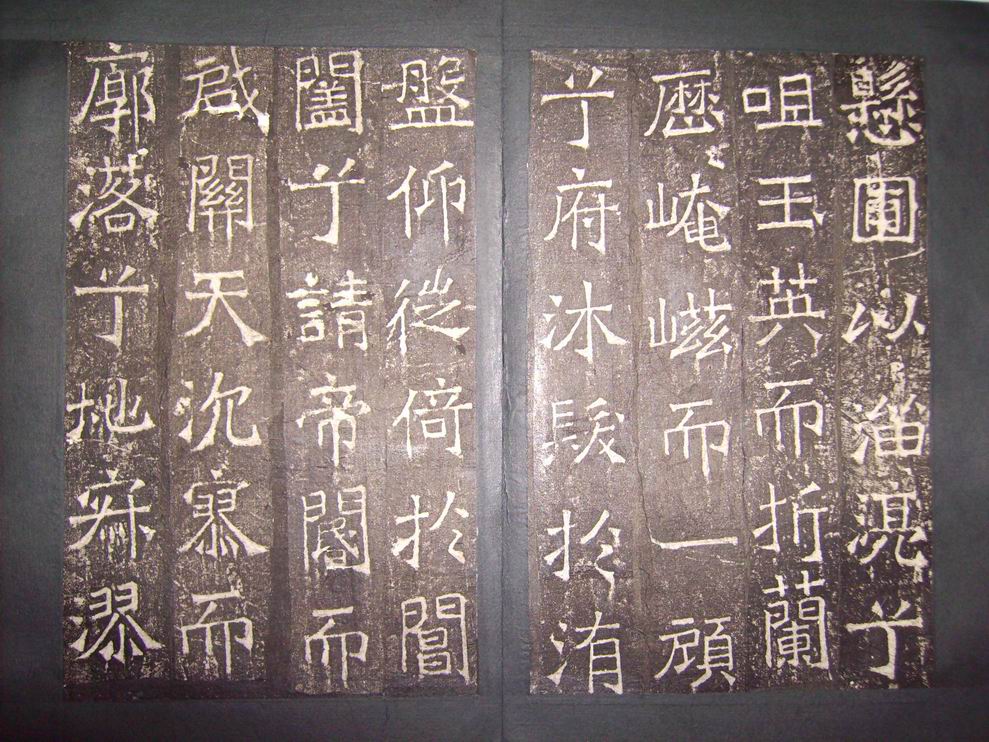 懸圃以淄兮
咀玉英而折蘭
歷崦嵫而一顧
兮府沐髮於洧
盤仰徙倚於閶
闔兮請帝閽而
啟關天沉寥而
廓落兮地寂漻